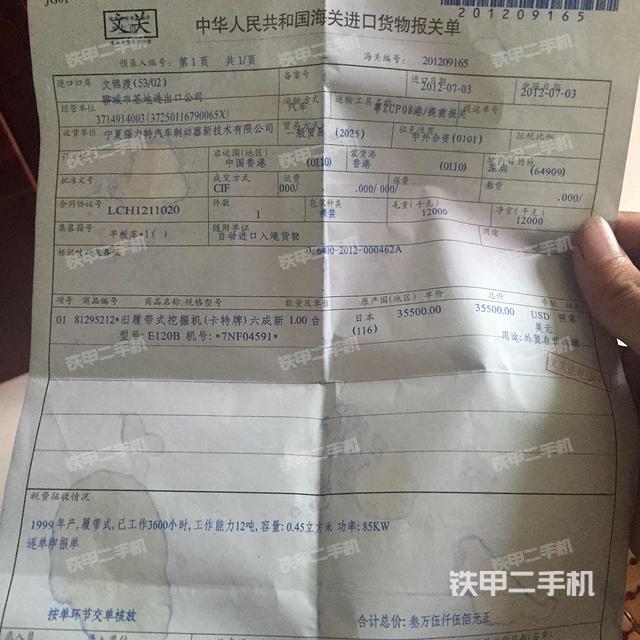 JG01
文关
中华人民共和国海关进口货物报关单
201209165
预录入编号: 第1页 共1页 海关编号: 201209165
进口口岸 文锦渡(53/02) 备案号 进口日期 2012-07-03 2012-07-03
经营单位 聊城市基地进出口公司 3714914003 (37250116790065X) 运输方式 汽车 运输工具名称 粤ZCP08港/提前报关 提运单号
收货单位 宁夏强力特汽车制动器新技术有限公司 (2025) 中外合资(0101) 征税比例
启运国(地区) 中国香港 (0110) 装货港 香港 (0110) 深圳 (64909)
批准文号 成交方式 CIF 运费 000/ .000/ 000/ 保费 杂费 .000/
合同协议号 LCH1211020 件数 1 包装种类 裸装 毛重(千克) 12000 净重(千克) 12000
集装箱号 平板车*1( ) 随附单证 自动进口入境货物 用途
0-6410-2012-000462A
项号 商品编号 商品名称,规格型号 数量及单位 原产国(地区) 单价 总价
01 81295212*旧履带式挖掘机(卡特牌)六成新 1.00 台 日本 35500.00 35500.00 USD 照章
型号: E120B 机号: *7NF04591* (116) 美元
用途: 外贸自营内销
税费征收情况
1999年产,履带式,已工作3600小时,工作能力12吨,容量: 0.45立方米 功率: 85KW
逐单绑报单
按单环节交单核放 合计总价: 叁万伍仟伍佰元正
录入员 录入单位
铁甲二手机